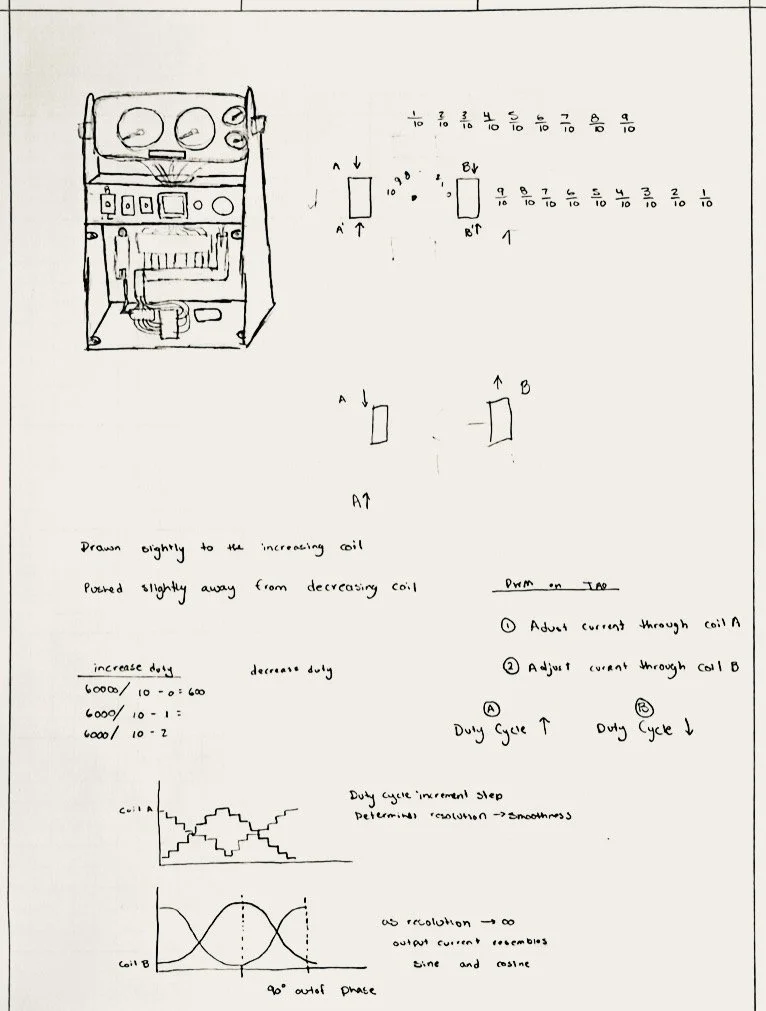 1/10 2/10 3/10 4/10 5/10 6/10 7/10 8/10 9/10
A ↓
10 9 8
B↓
9/10 8/10 7/10 6/10 5/10 4/10 3/10 2/10 1/10
A' ↑
B'↑
↑
A ↓
↑ B
A↑
Drawn slightly to the increasing coil
Pushed slightly away from decreasing coil
PWM on
① Adjust current through coil A
② Adjust curant through coil B
increase duty
decrease duty
60000/ 10 - 0 = 600
6000/ 10 - 1 =
6000/ 10 - 2
Ⓐ
Duty Cycle ↑
Ⓑ
Duty Cycle ↓
Coil A
Duty cycle increment step
Determines resolution → Smoothness
Coil B
as resolution → ∞
output current resembles
sine and cosine
90° outof phase